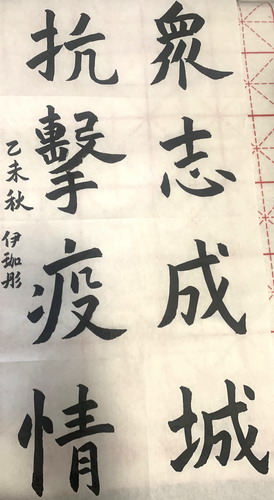 眾志成城
抗擊疫情
乙未秋 伊珈彤